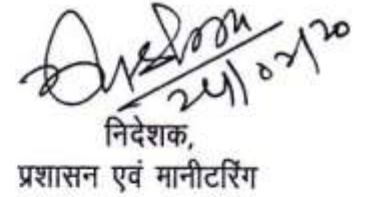 24/02/20
निदेशक,
प्रशासन एवं मानीटरिंग